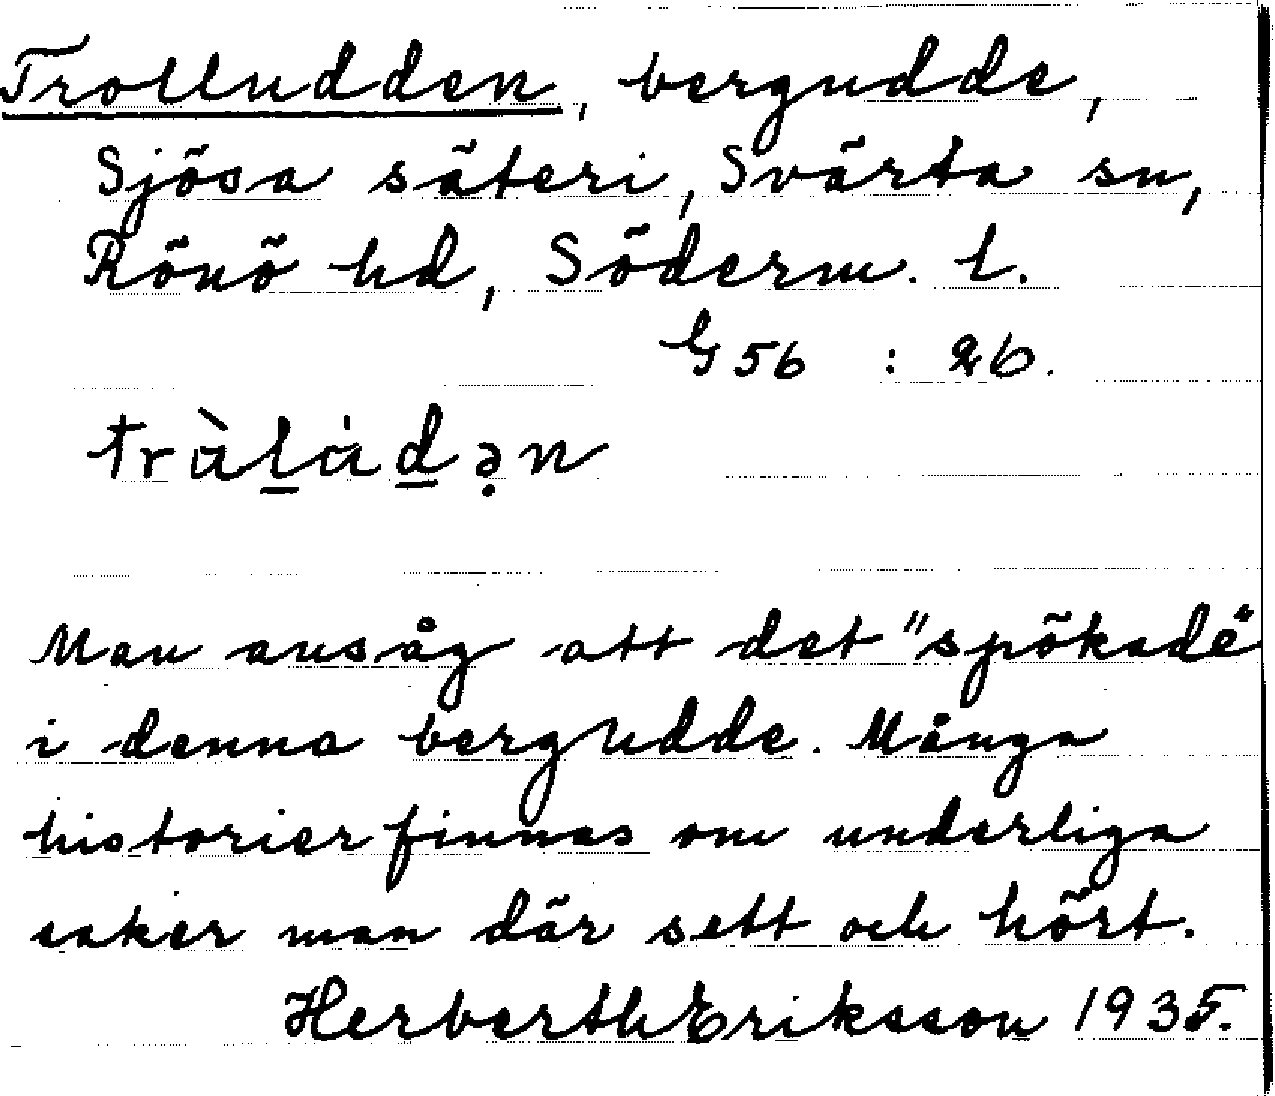 Trolludden, bergudde,
Sjösa säteri, Svärta sn,
Rönö hd, Söderm. l.
G 56 : 26.
tràlu̇dən
Man ansåg att det "spökade"
i denna bergudde. Många
historier finnas om underliga
saker man där sett och hört.
Herberth Eriksson 1935.